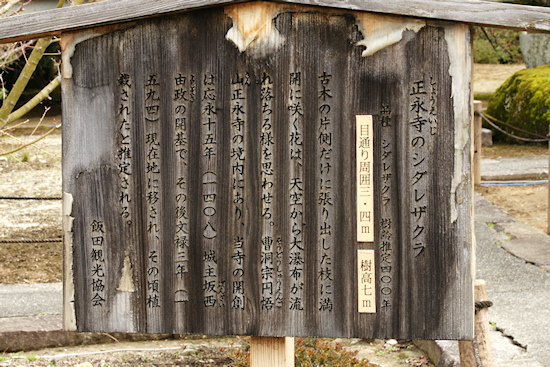 しょうえいじ
正永寺のシダレザクラ
品種 シダレザクラ 樹齢推定四〇〇年
目通り周囲三・四m 樹高七m
古木の片側だけに張り出した枝に満
開に咲く花は、大空から大瀑布が流
れ落ちる様を思わせる。曹洞宗円悟
山正永寺の境内にあり、当寺の開創
は応永十五年(一四〇八)城主坂西
由政の開基で、その後文禄三年(一
五九四)現在地に移され、その頃植
栽されたと推定される。
飯田観光協会